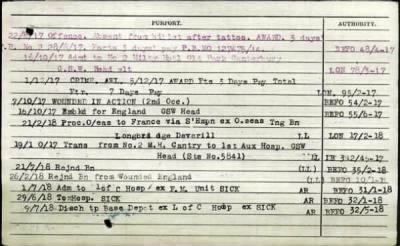 PURPORT. AUTHORITY.
22/8/17 Offence. Absent from billet after tattoo. AWARD. 3 days'
No 2 28/8/17. Forfts 3 days' pay P.B.NO BEFO 48/4-17
16/10/17 Admt to No 2 Milty Hptl Old Park Canterbury
G.S.W. Head slt LON 78/5-17
1/12/17 CRIME. AWL. 5/12/17 AWARD Fts 3 Days Pay Total
Ftr. 7 Days Pay LON. 95/2-17
7/10/17 WOUNDED IN ACTION (2nd Occ.) BEFO 54/2-17
16/10/17 Embkd for England GSW Head BEFO 56/6-17
21/2/18 Proc.O/seas to France via S'Hmpn ex O.seas Tng Bn
Longbridge Deverill (LL LON 17/2-18
19/10/17 Trans from No.2 M.H. Cantry to 1st Aux Hosp. GSW
Head (Stn No.5841) LL IH 392/45-17
21/7/18 Rejnd Bn (LL) BEFO 35/2-18
26/2/18 Rejnd Bn from Wounded England (LL) BEFO 10/1-18
1/7/18 Adm to 1 of C Hosp/ ex F.M. Unit SICK AR BEFO 31/1-18
29/6/18 To Hosp. SICK AR BEFO 32/1-18
9/7/18 Disch tp Base Depot ex L of C Hosp ex SICK AR BEFO 32/5-18